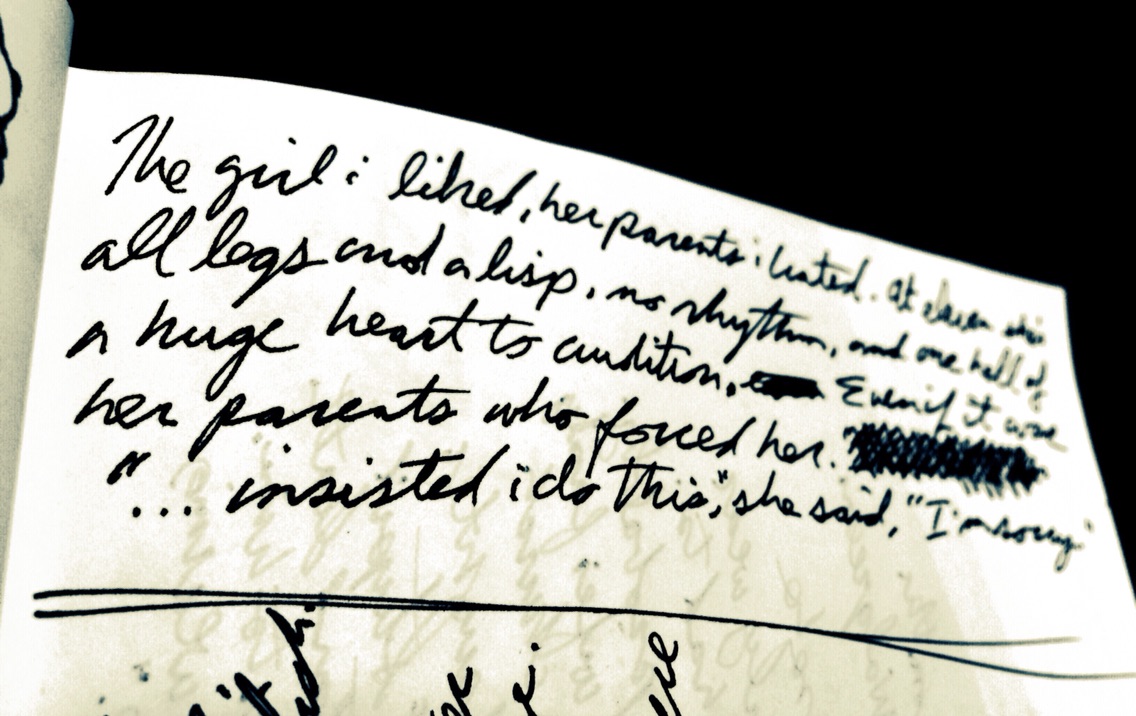 The girl i liked, her parents i hated. At eleven she's
all legs and a lisp, no rhythm, and one hell of
a huge heart to audition, Even if it were
her parents who forced her.
"... insisted i do this", she said, "I'm sorry"